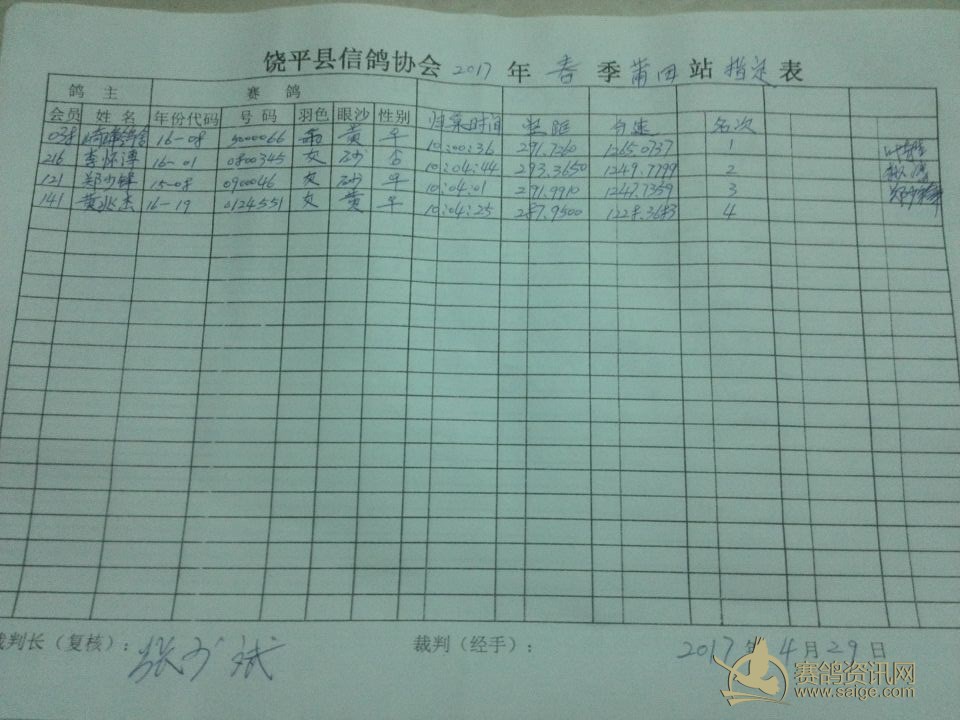 饶平县信鸽协会 2017 年 春 季 莆田 站 指定 表
鸽 主 赛 鸽
会员 姓 名 年份代码 号 码 羽色 眼沙 性别 归巢时间 空距 分速 名次
038 16-08 雨 黄 平 10:00:36 1265.0737 1
216 李怀潭 16-01 0800345 灰 砂 否 10:04:44 293.3650 1249.7799 2
121 郑少锋 15-08 090046 灰 砂 平 10:04:01 291.9910 1247.7359 3
141 黄兆杰 16-19 0124551 灰 黄 平 10:04:25 287.9500 1228.3683 4
裁判长（复核）： 张少斌 裁判（经手）： 2017 年 4 月 29 日
赛鸽资讯网
www.saigc.com